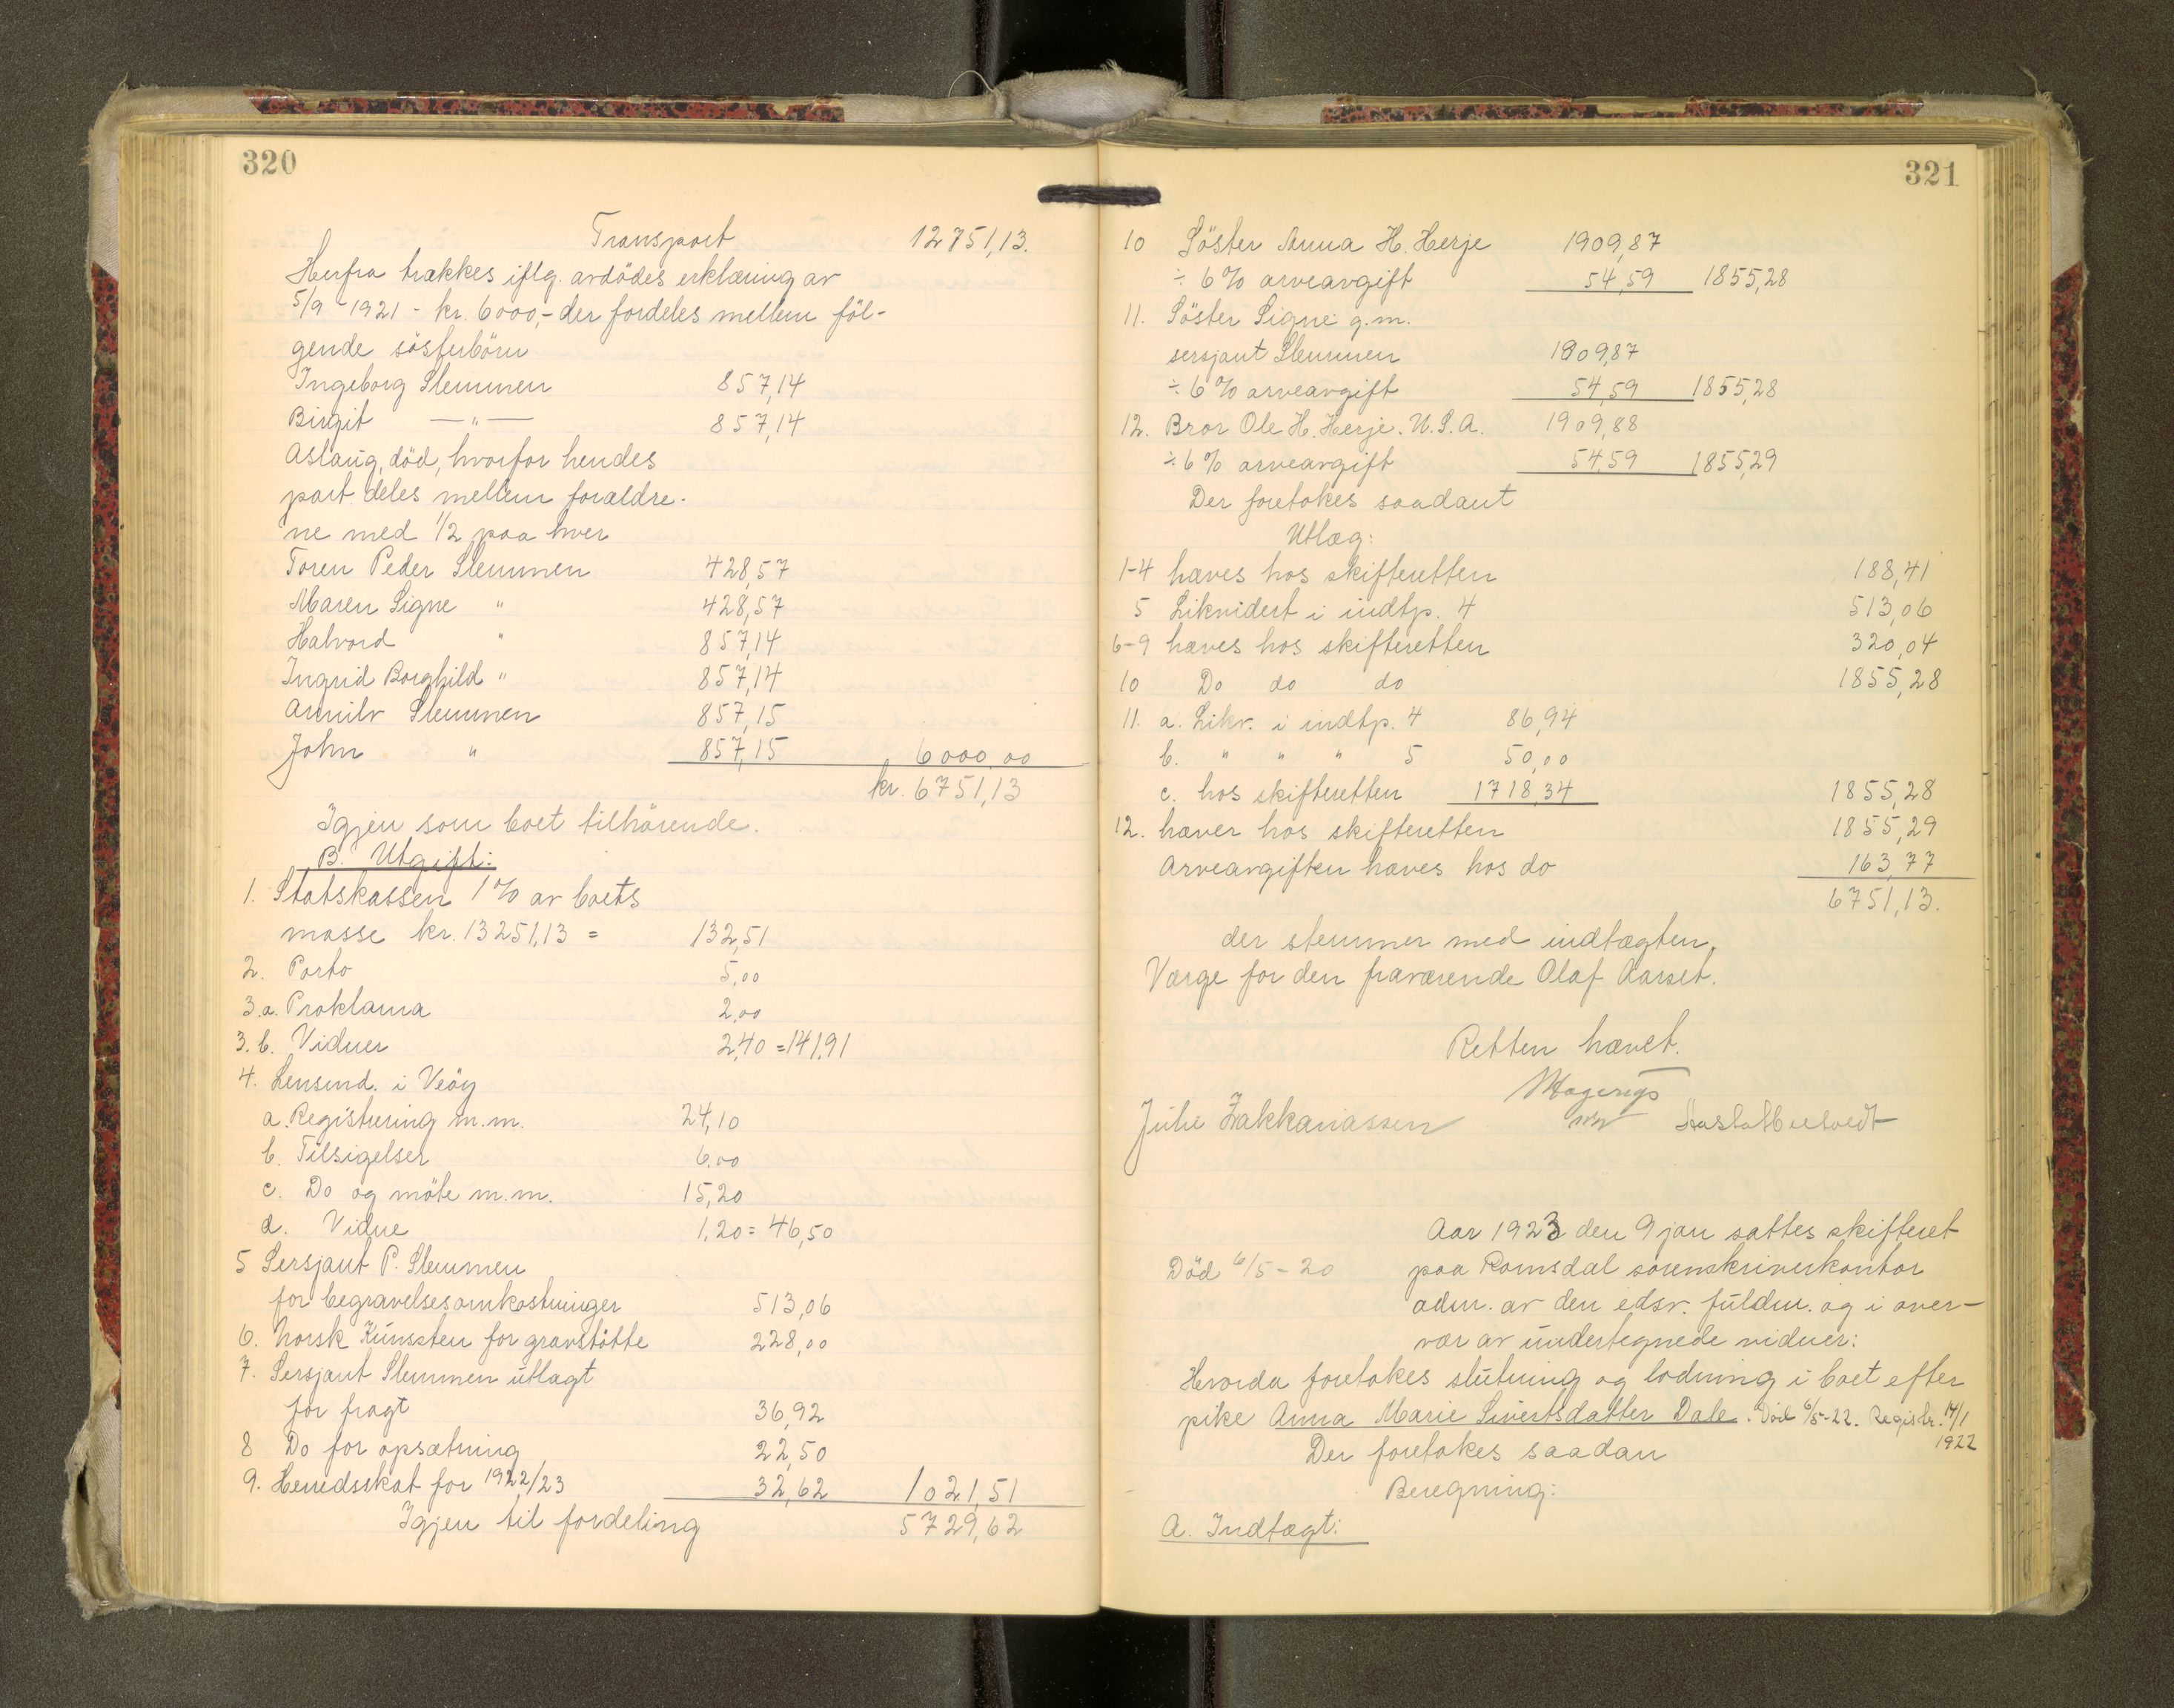 320
Transport 12751,13.
Herfra trækkes iflg. avdödes erklæring av
5/9 - 1921 - kr. 6000,- der fordeles mellem föl-
gende sösterbörn
Ingeborg Slemmen 857,14
Birgit —"— 857,14
Aslaug, död, hvorfor hendes
part deles mellem forældre-
ne med 1/2 paa hver
Faren Peder Slemmen 428,57
Moren Signe " 428,57
Halvord " 857,14
Ingrid Borghild " 857,14
Arnulv Slemmen 857,15
John " 857,15 6000,00
kr. 6751,13
Igjen som boet tilhörende.
B. Utgift:
1. Statskassen 1% av boets
masse kr. 13251,13 = 132,51
2. Porto 5,00
3.a. Proklama 2,00
3.b. Vidner 2,40 = 141,91
4. Lensmd. i Veöy
a. Registrering m.m. 24,10
b. Tilsigelser 6,00
c. Do og möte m.m. 15,20
d. Vidne 1,20 = 46,50
5 Sersjant P. Slemmen
for begravelsesomkostninger 513,06
6. Norsk Kunssten for gravstötte 228,00
7. Sersjant Slemmen utlagt
for fragt 36,92
8 Do for opsætning 22,50
9. Herredsskat for 1922/23 32,62 1021,51
Igjen til fordeling 5729,62
321
10 Söster Anna H. Herje 1909,87
÷ 6% arveavgift 54,59 1855,28
11. Söster Signe g.m.
sersjant Slemmen 1909,87
÷ 6% arveavgift 54,59 1855,28
12. Bror Ole H. Herje. U.S.A. 1909,88
÷ 6% arveavgift 54,59 1855,29
Der foretokes saadant
Utlæg:
1-4 hæves hos skifteretten 188,41
5 Likvidert i indtp. 4 513,06
6-9 hæves hos skifteretten 320,04
10 Do do do 1855,28
11. a. Likv. i indtp. 4 86,94
b. " " " 5 50,00
c. hos skifteretten 1718,34 1855,28
12. hæver hos skifteretten 1855,29
Arveavgiften hæves hos do 163,77
6751,13.
der stemmer med indtægten.
Værge for den fraværende Olaf Aarset.
Retten hævet.
Julie Zakkariassen
Aar 1923 den 9 jan sattes skifteret
Död 6/5 - 20 paa Romsdal sorenskriverkontor
adm. av den edsv. fuldm. og i over-
vær av undertegnede vidner:
Hvorda foretokes slutning og lodning i boet efter
pike Anna Marie Sivertsdatter Dale. Död 6/5-22. Registr. 14/1
1922
Der foretokes saadan
Beregning:
A. Indtægt: